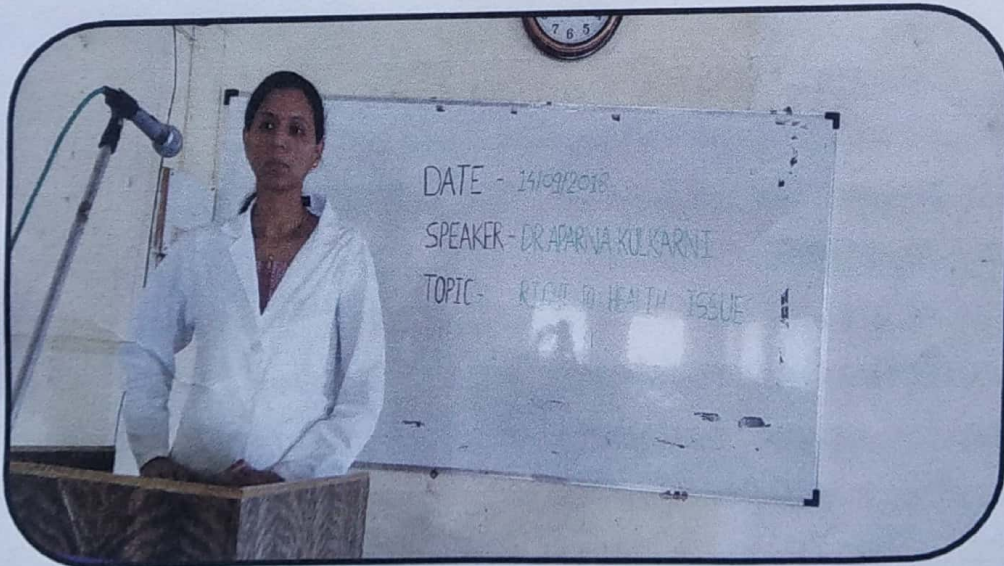 7 6 5
DATE - 14/09/2018
SPEAKER - DR.APARNA KULKARNI
TOPIC - RIGHT TO HEALTH ISSUE